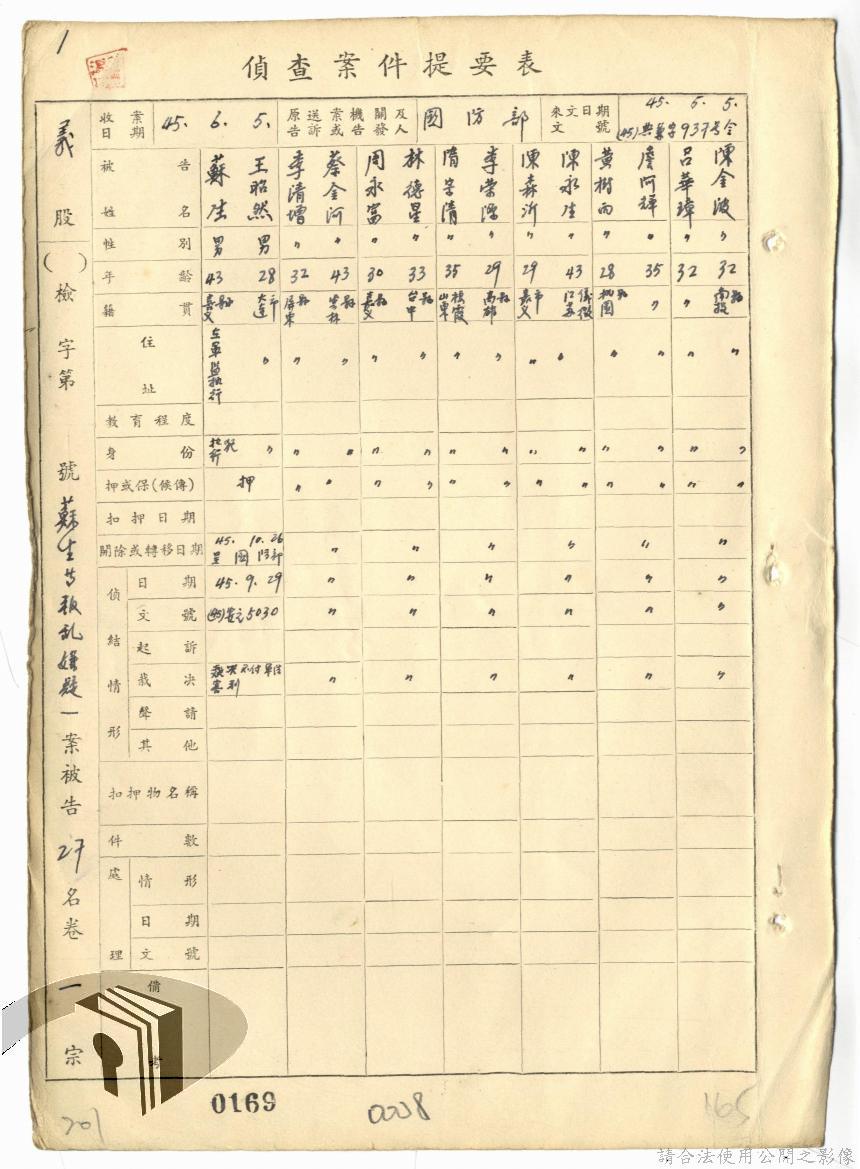 1
偵查案件提要表
義股
( )檢字第 號蘇生等叛乱嫌疑一案被告27名卷一宗
收案日期 45. 6. 5. 原送案機關及告訴或告發人 國防部 來文日期文號 45. 5. 5. 937号令
被告姓名 蘇生 王昭然 李清增 蔡金河 周永富 林德星 隋字清 李榮源 陳森沂 陳永生 黃樹雨 詹阿輝 呂華璋 陳金波
性別 男 男 〃 〃 〃 〃 〃 〃 〃 〃 〃 〃 〃 〃
年齡 43 28 32 43 30 33 35 29 29 43 28 35 32 32
籍貫 嘉義縣 大連市 屏東縣 雲林縣 嘉義縣 台中縣 山東棲霞 高雄縣 嘉義市 江苏儀徵 桃園縣 〃 〃 南投縣
住址 在軍監執行 〃 〃 〃 〃 〃 〃 〃 〃 〃 〃 〃 〃 〃
教育程度
身份 〃 〃 〃 〃 〃 〃 〃 〃 〃 〃 〃 〃 〃
押或保(候傳) 押 〃 〃 〃 〃 〃 〃 〃 〃 〃 〃 〃 〃
扣押日期
開除或轉移日期 45. 10. 26 呈國防部 〃 〃 〃 〃 〃 〃
偵結情形
日期 45. 9. 29 〃 〃 〃 〃 〃 〃
文號 (45)5030 〃 〃 〃 〃 〃 〃
起訴
裁决 裁决不付軍法審判 〃 〃 〃 〃 〃 〃
聲請
其他
扣押物名稱
件數
處理
情形
日期
文號
備考
0169
0028
201
165
請合法使用公開之影像